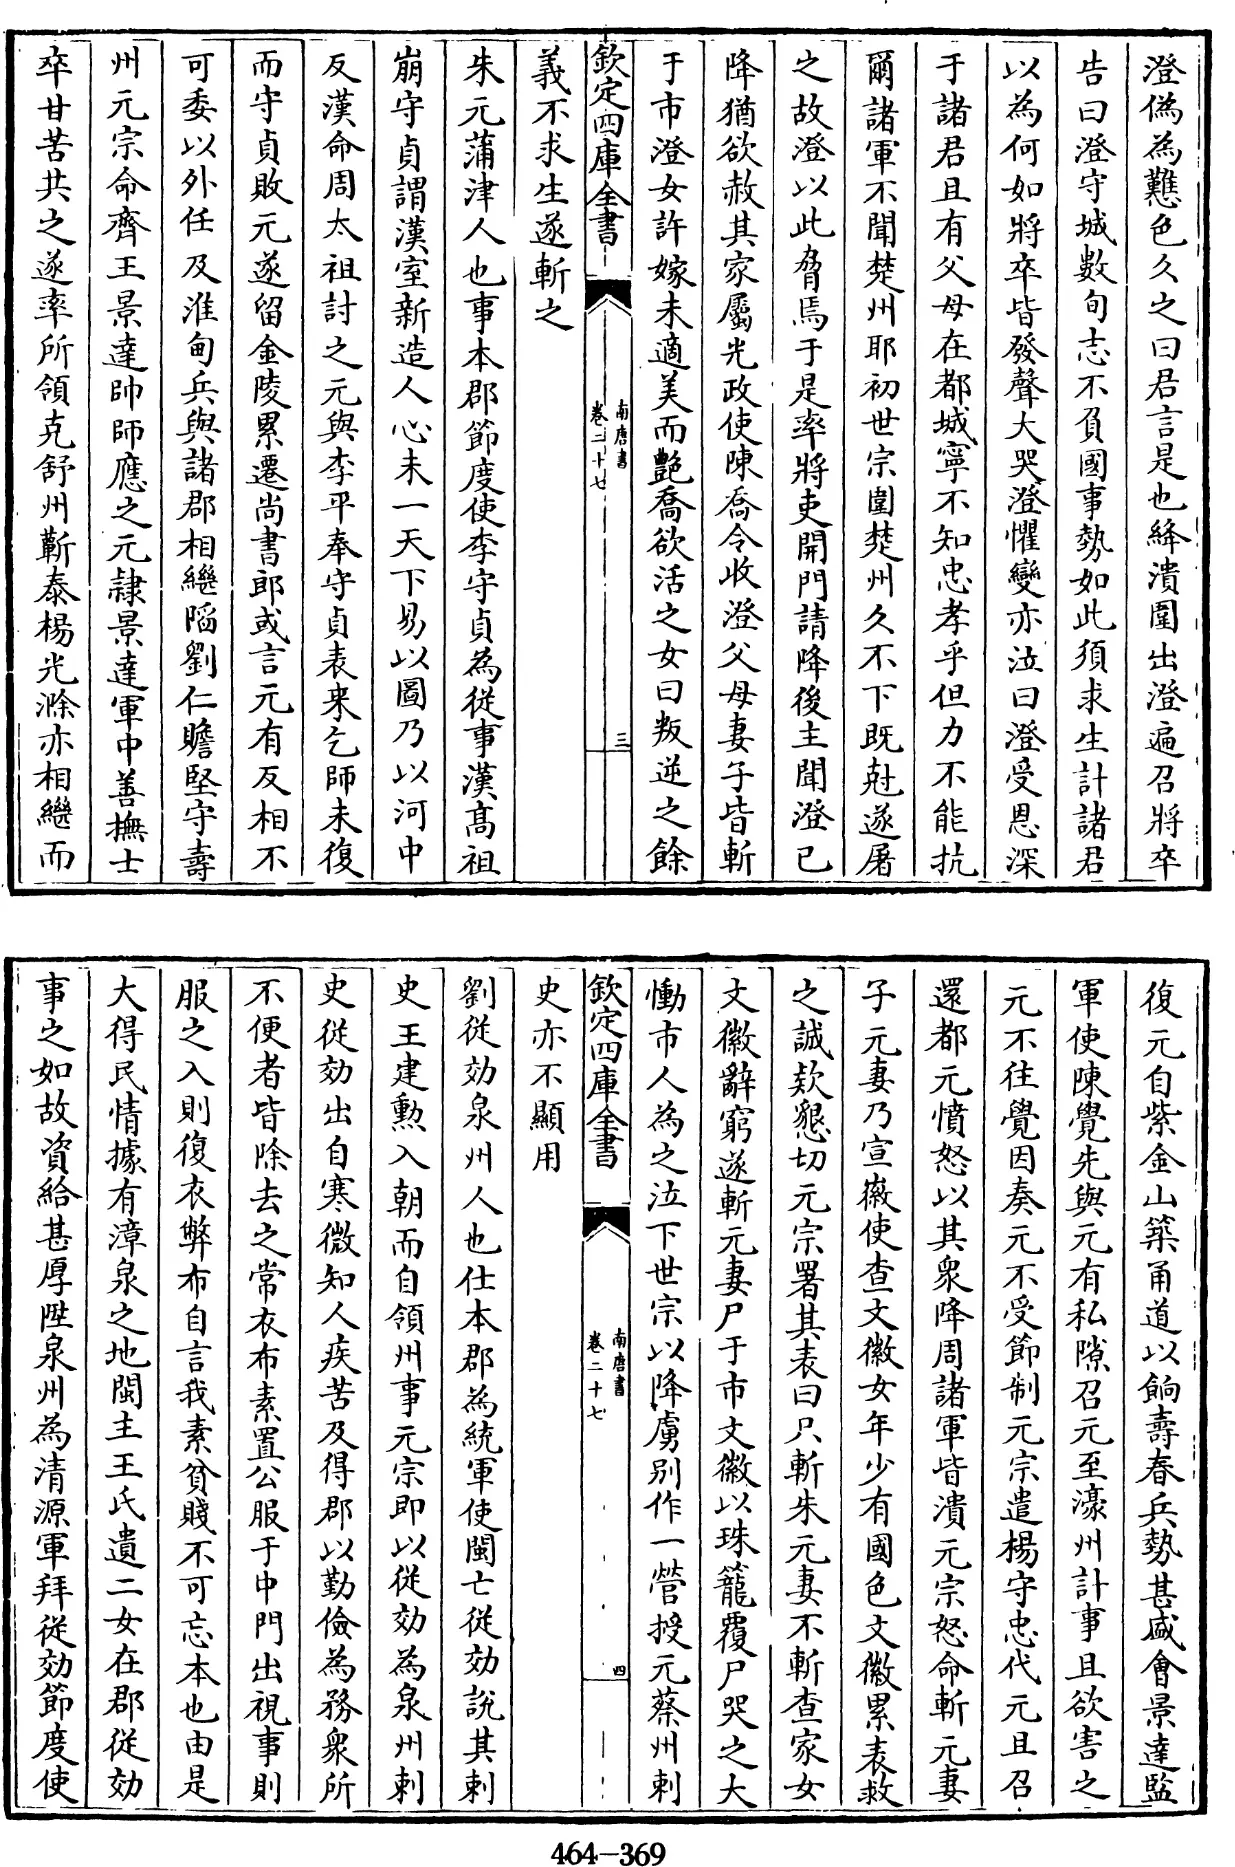 澄僞為難色久之曰君言是也絳潰圍出澄遍召將卒
告曰澄守城數旬志不負國事勢如此須求生計諸君
以為何如將卒皆發聲大哭澄懼變亦泣曰澄受恩深
于諸君且有父母在都城寧不知忠孝乎但力不能抗
爾諸軍不聞楚州耶初世宗圍楚州久不下既尅遂屠
之故澄以此脅焉于是率將吏開門請降後主聞澄已
降猶欲赦其家屬光政使陳喬令收澄父母妻子皆斬
于市澄女許嫁未適美而艷喬欲活之女曰叛逆之餘
欽定四庫全書
南唐書
卷二十七
三
義不求生遂斬之
朱元蒲津人也事本郡節度使李守貞為從事漢髙祖
崩守貞謂漢室新造人心未一天下易以圖乃以河中
反漢命周太祖討之元與李平奉守貞表来乞師未復
而守貞敗元遂留金陵累遷尚書郎或言元有反相不
可委以外任及淮甸兵興諸郡相繼陷劉仁贍堅守壽
州元宗命齊王景達帥師應之元隷景達軍中善撫士
卒甘苦共之遂率所領克舒州蘄泰楊光滁亦相繼而
復元自紫金山築甬道以餉壽春兵勢甚盛會景達監
軍使陳覺先與元有私隙召元至濠州計事且欲害之
元不往覺因奏元不受節制元宗遣楊守忠代元且召
還都元憤怒以其衆降周諸軍皆潰元宗怒命斬元妻
子元妻乃宣徽使查文徽女年少有國色文徽累表救
之誠欵懇切元宗署其表曰只斬朱元妻不斬查家女
文徽辭窮遂斬元妻尸于市文徽以珠籠覆尸哭之大
慟市人為之泣下世宗以降虜别作一營授元蔡州刺
欽定四庫全書
南唐書
卷二十七
四
史亦不顯用
劉從効泉州人也仕本郡為統軍使閩亡從効説其刺
史王建勲入朝而自領州事元宗即以從効為泉州刺
史從効出自寒微知人疾苦及得郡以勤儉為務衆所
不便者皆除去之常衣布素置公服于中門出視事則
服之入則復衣弊布自言我素貧賤不可忘本也由是
大得民情據有漳泉之地閩主王氏遺二女在郡從効
事之如故資給甚厚陞泉州為清源軍拜從効節度使
464-369